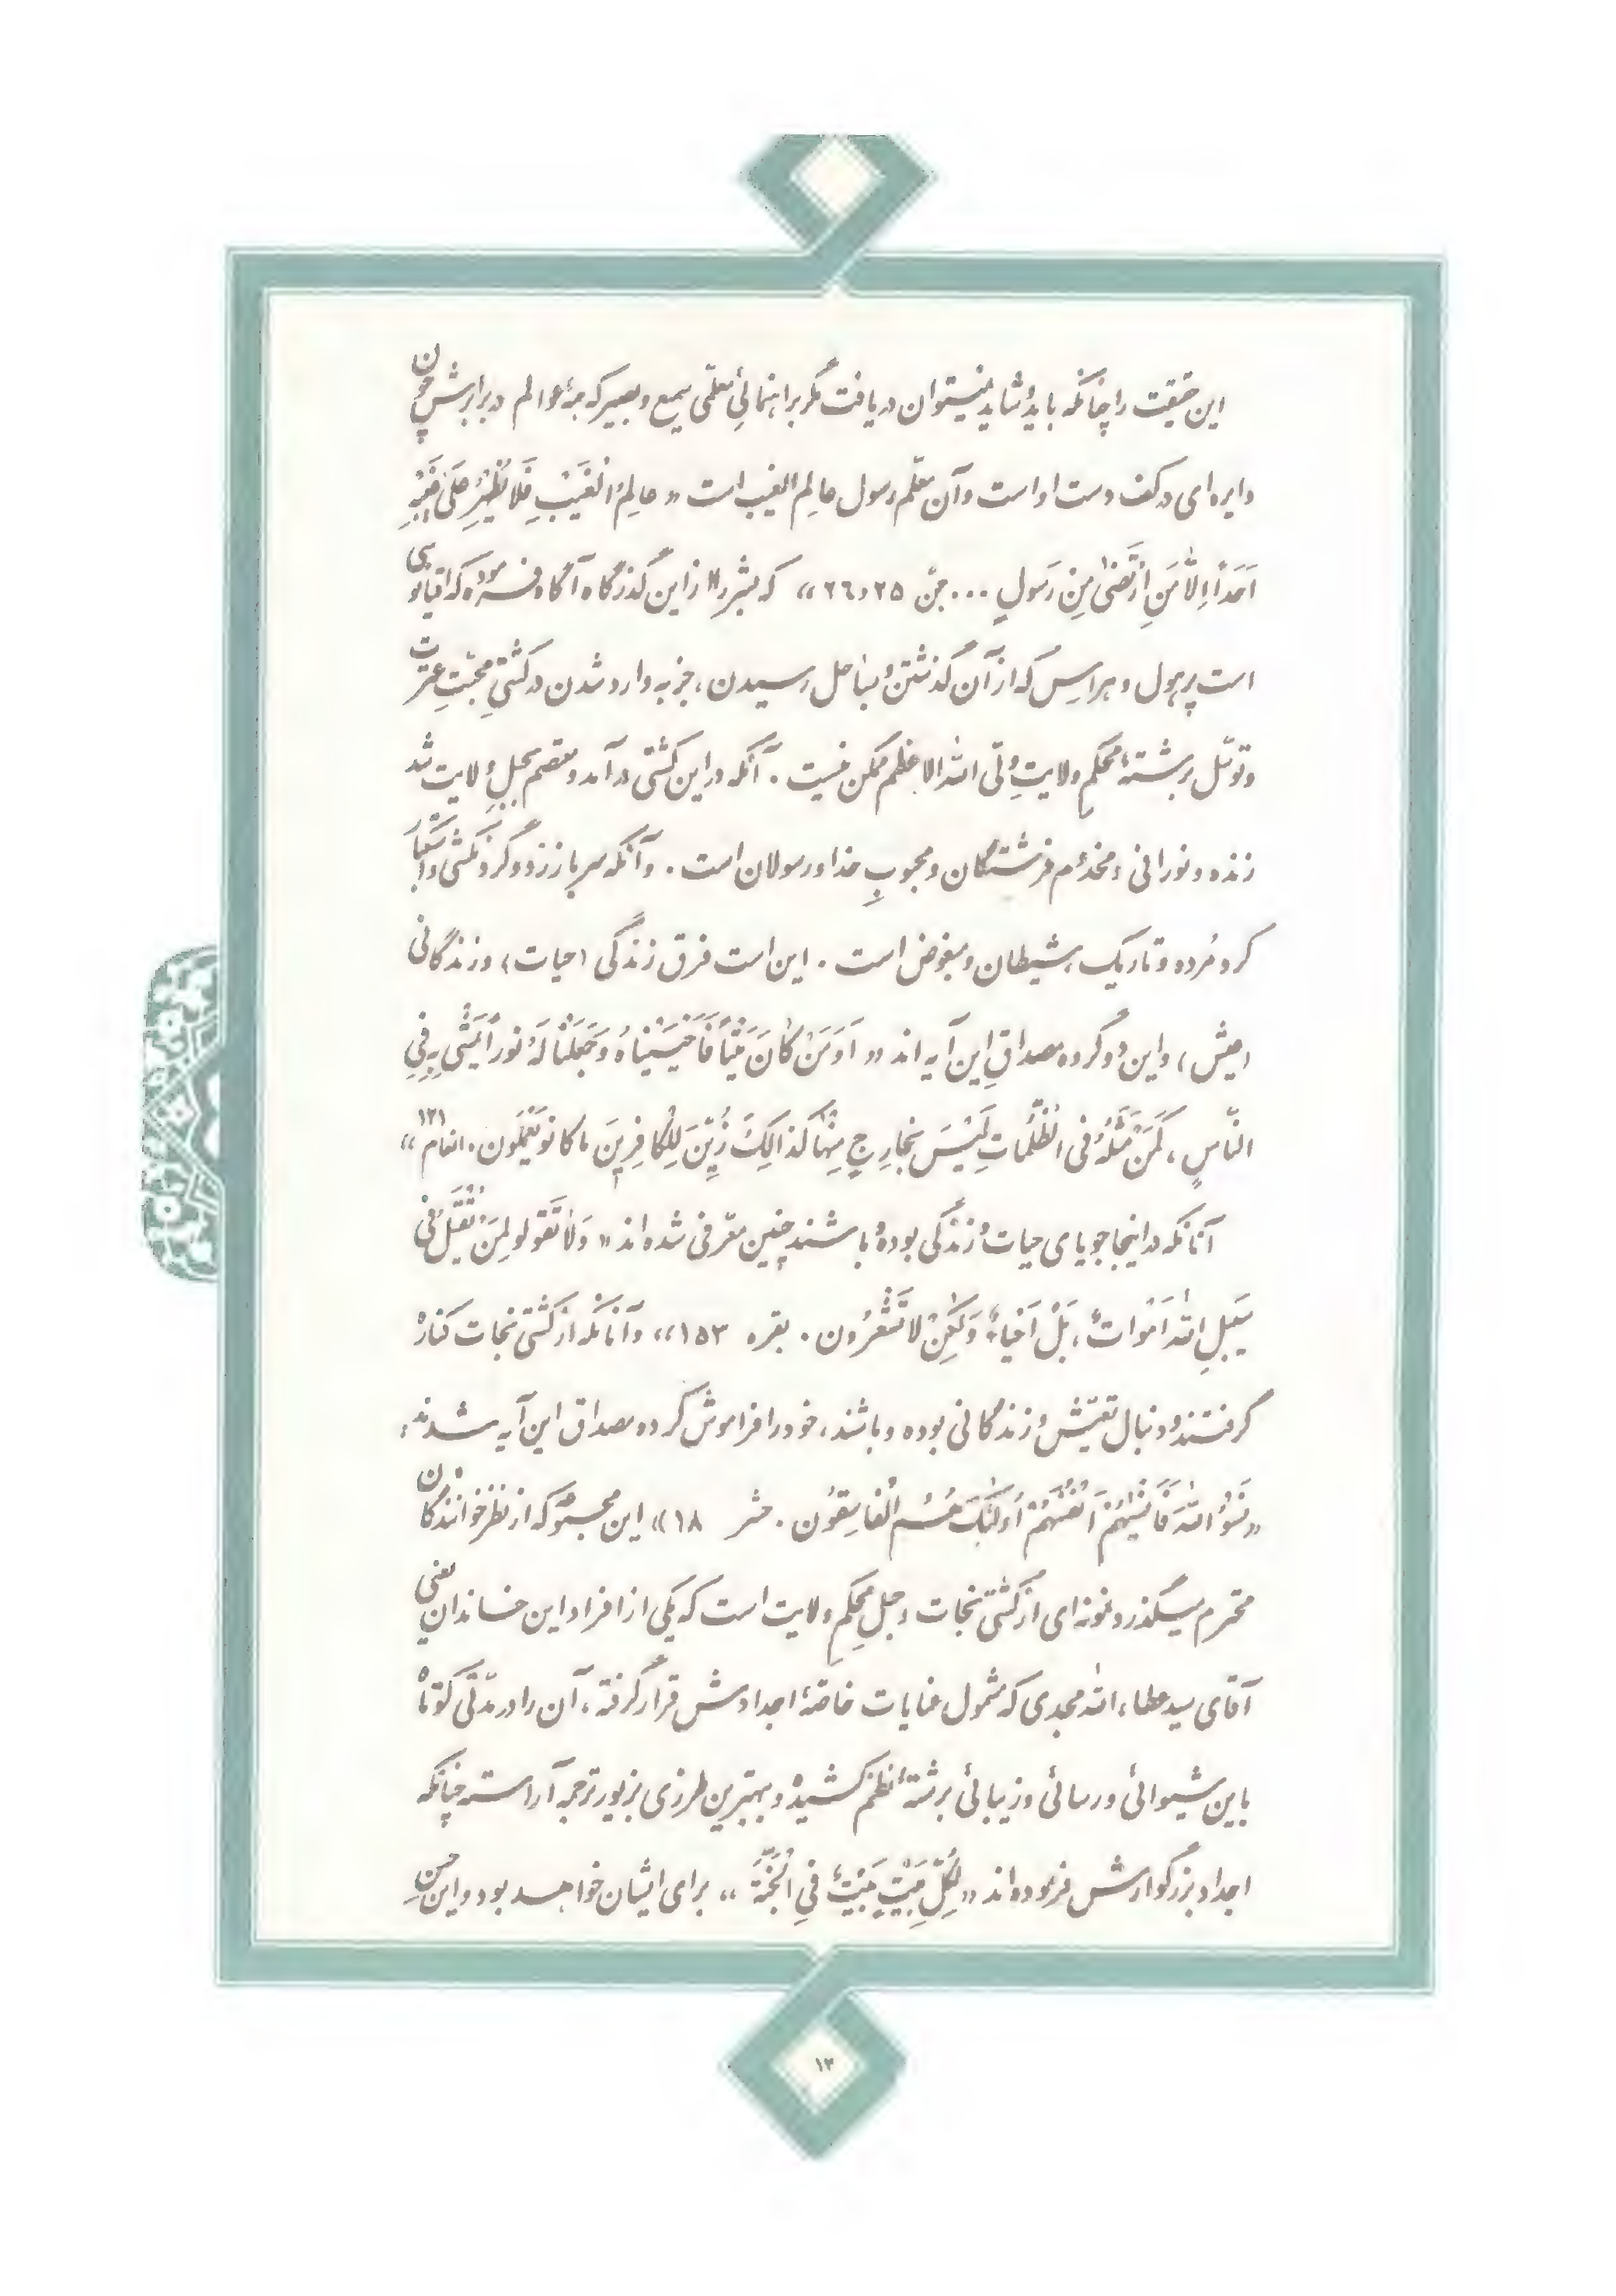 این حقیقت را چنانکه باید و شاید نمیتوان دریافت مگر براهنمائی معلّمی سمیع و بصیر که همهٔ عوالم در برابرش چون
دایره‌ای در کف دست او است و آن معلّم رسول عالم الغیب است « عالِمُ الْغَیْبِ فَلا یُظْهِرُ عَلیٰ غَیْبِهِ
اَحَدَاً اِلّا مَنِ ارْتَضیٰ مِنْ رَسُولٍ ... جنّ ۲۵ و ۲۶ » که بشر را از این گذرگاه آگاه فرموده که اقیانوسی
است پر هول و هراس که از آن گذشتن و بساحل رسیدن، جز به وارد شدن در کشتیِ محبّتِ عترت
و توسّل برشتهٔ محکم ولایتِ ولّی الله الاعظم ممکن نیست . آنکه در این کشتی درآمد و معتصم بحبلِ ولایت شد
زنده و نورانی و مخدوم فرشتگان و محبوبِ خدا و رسولان است . و آنکه سر باز زد و گردنکشی و استکبار
کرد مُرده و تاریک، شیطان و مبغوض است . این است فرق زندگی (حیات) و زندگانی
(عیش) و این دو گروه مصداقِ این آیه‌اند « اَوَمَنْ کٰانَ مَیْتاً فَاَحْیَیْناهُ وَجَعَلْنٰا لَهُ نوراً یَمْشی بِهِ فِی
النّاسِ، کَمَنْ مَثَلُهُ فی الظُّلُمٰاتِ لَیْسَ بِخارِجٍ مِنْهٰا کَذالِکَ زُیِّنَ لِلْکافِرینَ ماکانو یَعْمَلُون . انعام ۱۲۱ »
آنانکه در اینجا جویای حیات و زندگی بوده و باشند چنین معّرفی شده‌اند « وَلاٰ تَقولو لِمَنْ یُقْتَلُ فی
سَبیلِ اللهِ اَمْواتٌ، بَلْ اَحْیاءٌ وَلٰکِنْ لا تَشْعُرُون . بقره ۱۵۳ » و آنانکه از کشتی نجات کناره
گرفتند و دنبال تعیّش و زندگانی بوده و باشند، خود را فراموش کرده مصداق این آیه شدند :
« نَسُوُ اللهَ فَاَنْسٰیهُمْ اَنْفُسَهُمْ اُولٰئِکَ هُمُ الْفاسِقُون . حشر ۱۸ » این مجموعه که از نظر خوانندگان
محترم میگذرد نمونه‌ای از کشتی نجات و حبلِ محکمِ ولایت است که یکی از افراد این خاندان یعنی
آقای سید عطاء الله مجدی که مشمول عنایات خاصّهٔ اجدادش قرار گرفته، آن را در مدّتی کوتاه
باین شیوائی و رسائی و زیبائی برشتهٔ نظم کشیده و بهترین طرزی بزیور ترجمه آراسته چنانکه
اجداد بزرگوارش فرموده‌اند « لِکُلِّ بَیْتٍ بَیْتٌ فِی الْجَنَّةِ » برای ایشان خواهد بود و این حسنِ
۱۲